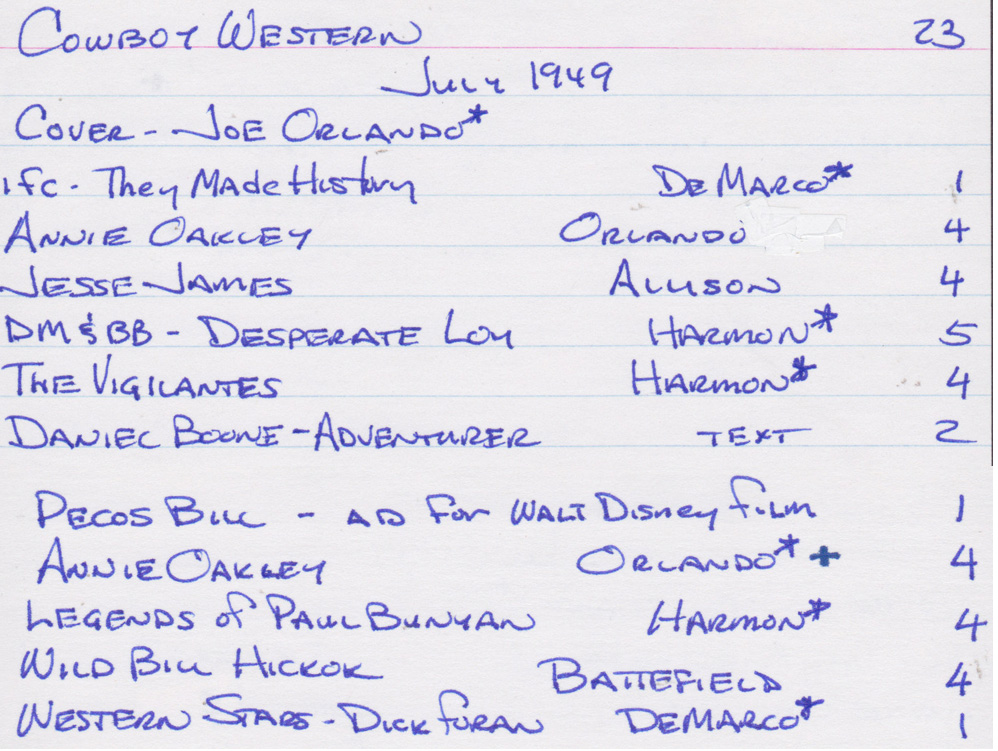 Cowboy Western 23
July 1949
Cover - Joe Orlando*
ifc - They Made History DeMarco* 1
Annie Oakley Orlando 4
Jesse James Allison 4
DM & BB - Desperate Loy Harmon* 5
The Vigilantes Harmon* 4
Daniel Boone - Adventurer text 2
Pecos Bill - ad for Walt Disney film 1
Annie Oakley Orlando* + 4
Legends of Paul Bunyan Harmon* 4
Wild Bill Hickok Battefield 4
Western Stars - Dick Foran DeMarco* 1